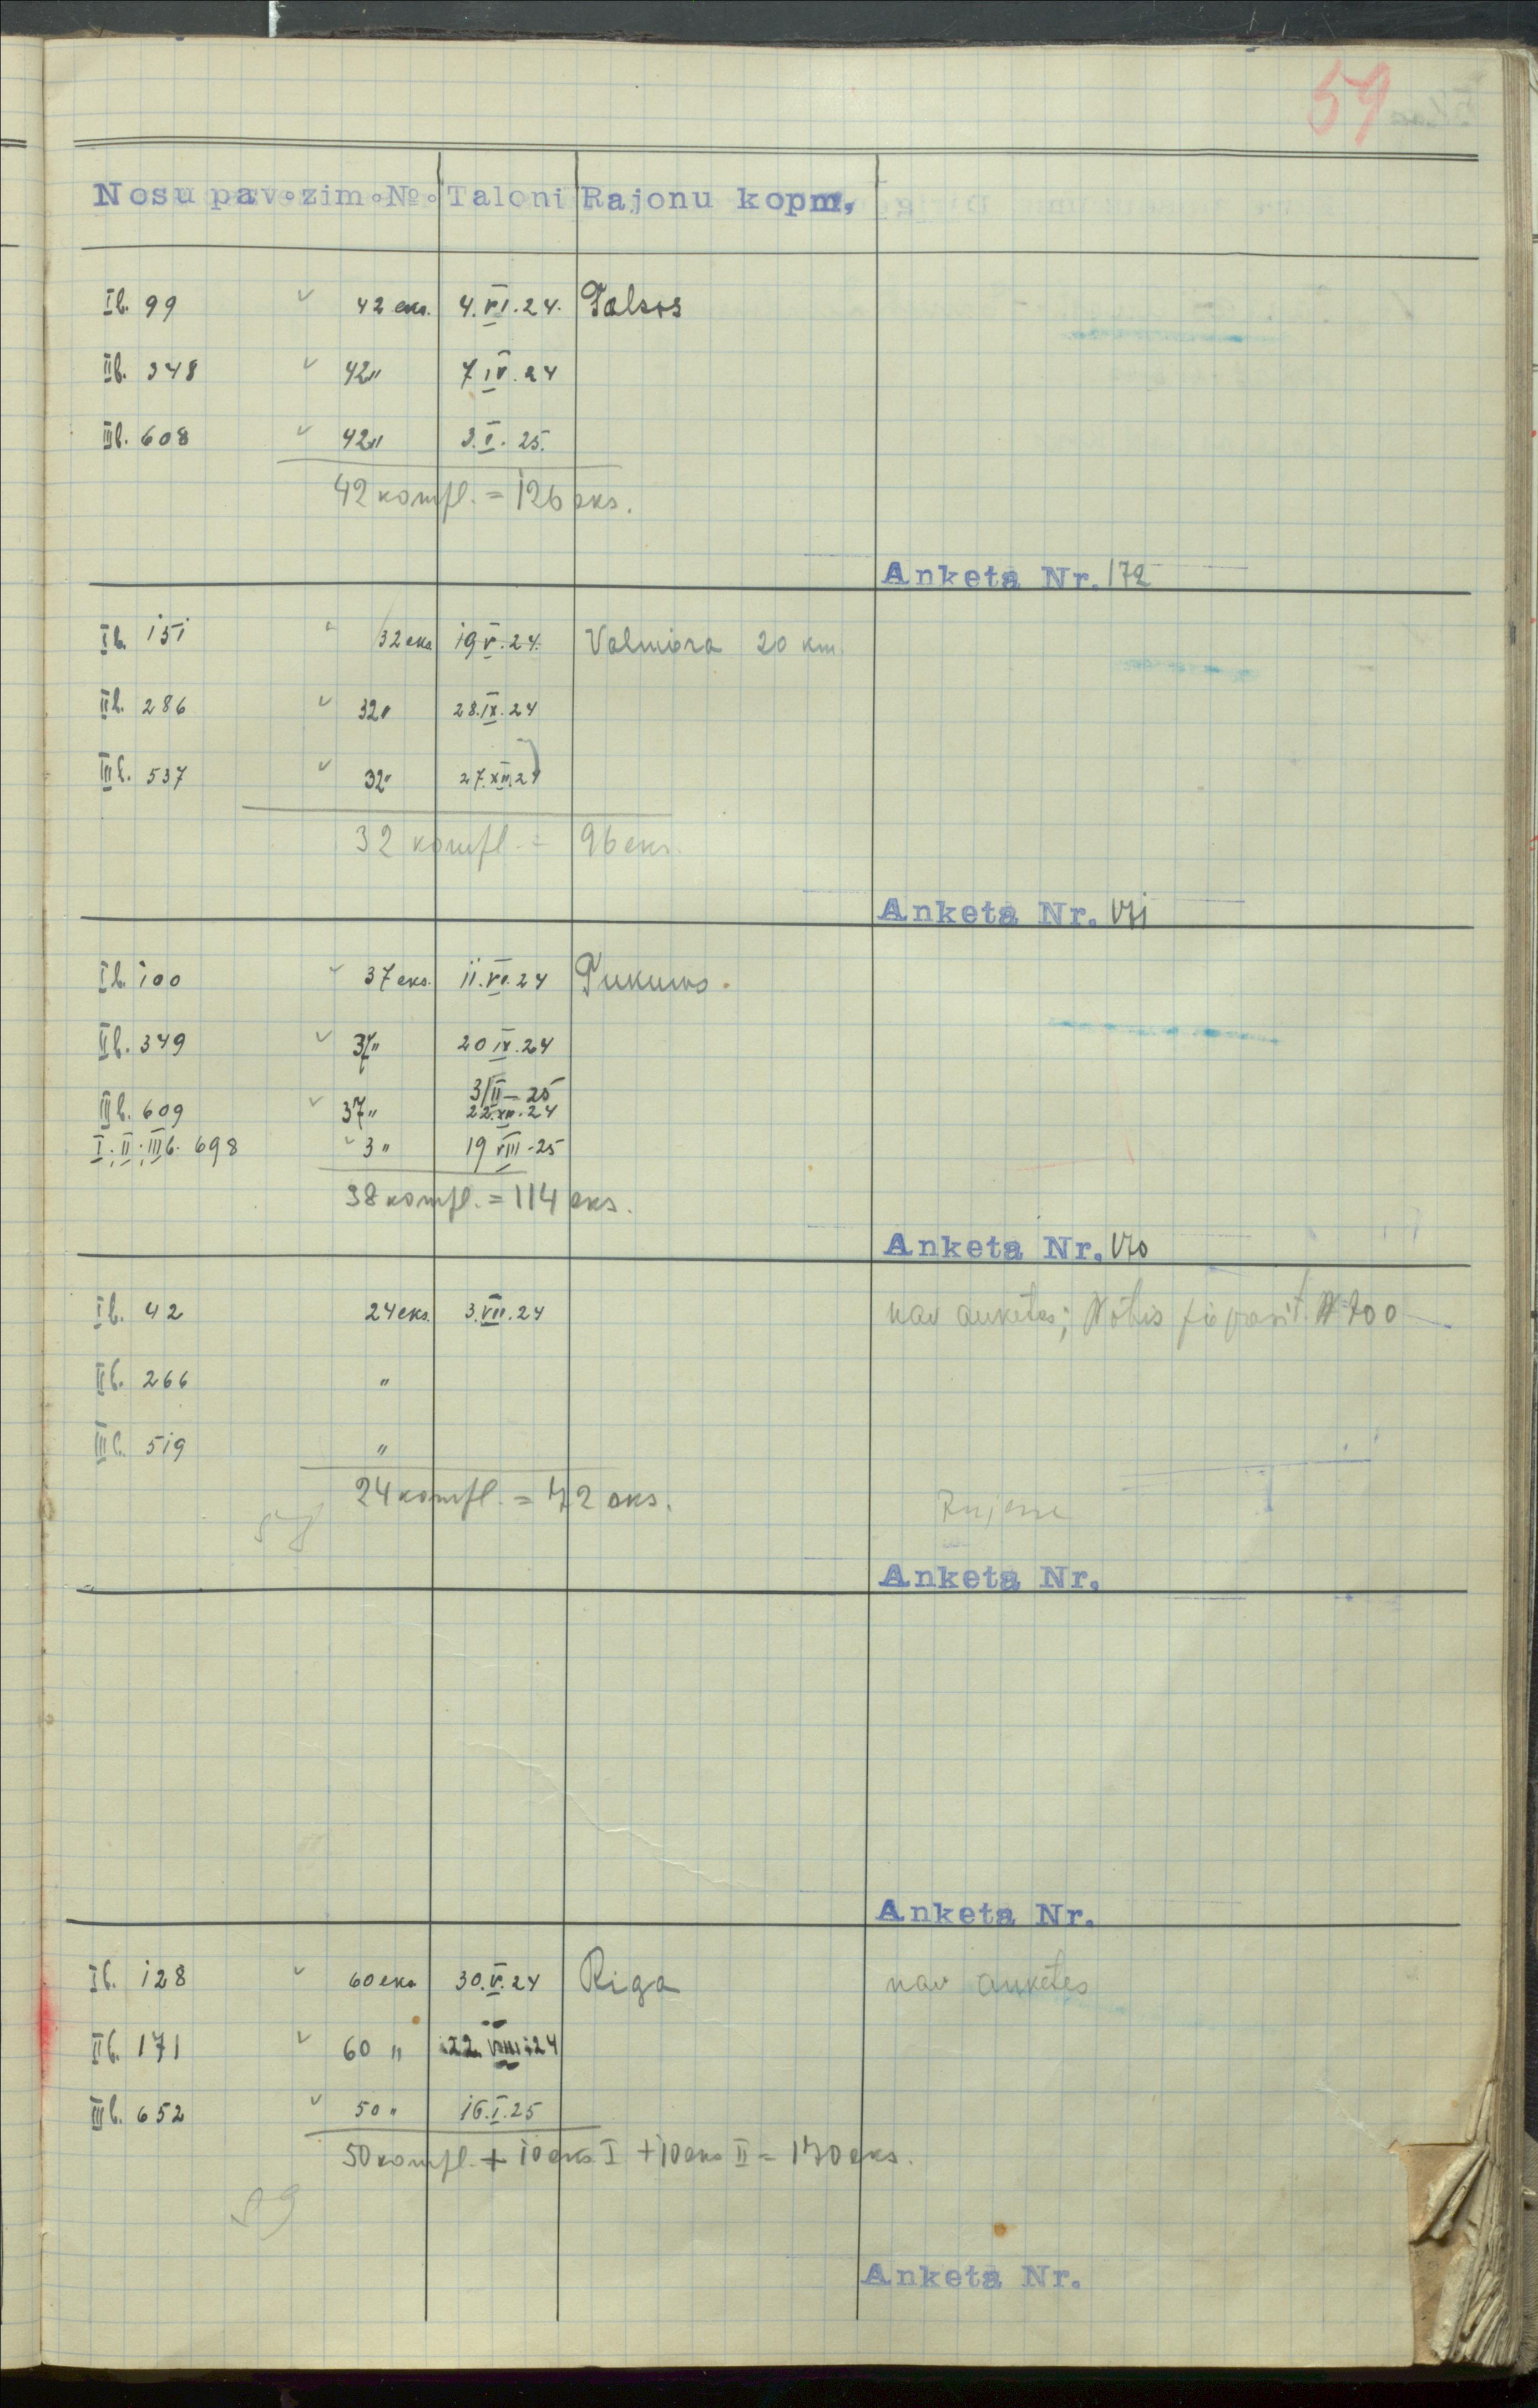 59
Nosu pav. zim. No. Taloni Rajonu kopm.
Ib. 99 42 eks. 4.VI.24. Talsos
IIb. 348 42 " 7 IV.24
IIIb. 608 42 " 3.I.25.
42 kompl. = 126 eks.
Anketa Nr. 172
Ib. 151 32 eks 19 V.24. Valmiera 20 km.
IIb. 286 32 " 28.IX.24
IIIb. 537 32 " 27.XII.24
32 kompl. = 96 eks.
Anketa Nr. 171
Ib. 100 37 eks. 11.VI.24 Tukums.
IIb. 349 37 " 20 IX.24
3/II-25
IIIb. 609 37 " 22.XII.24
I; II; IIIb. 698 3 " 19 VIII-25
38 kompl. = 114 eks.
Anketa Nr. 170
Ib. 42 24 eks. 3.VII.24 nav anketes; Notis N 700
IIb. 266 "
IIIb. 519 "
24 kompl. = 72 eks.
58 Rujene
Anketa Nr.
Anketa Nr.
Ib. 128 60 eks 30.V.24 Riga nav anketes
IIb. 171 60 " 22 VIII 24
IIIb. 652 50 " 16.I.25
50 kompl. + 10 eks I + 10 eks II = 170 eks.
59
Anketa Nr.